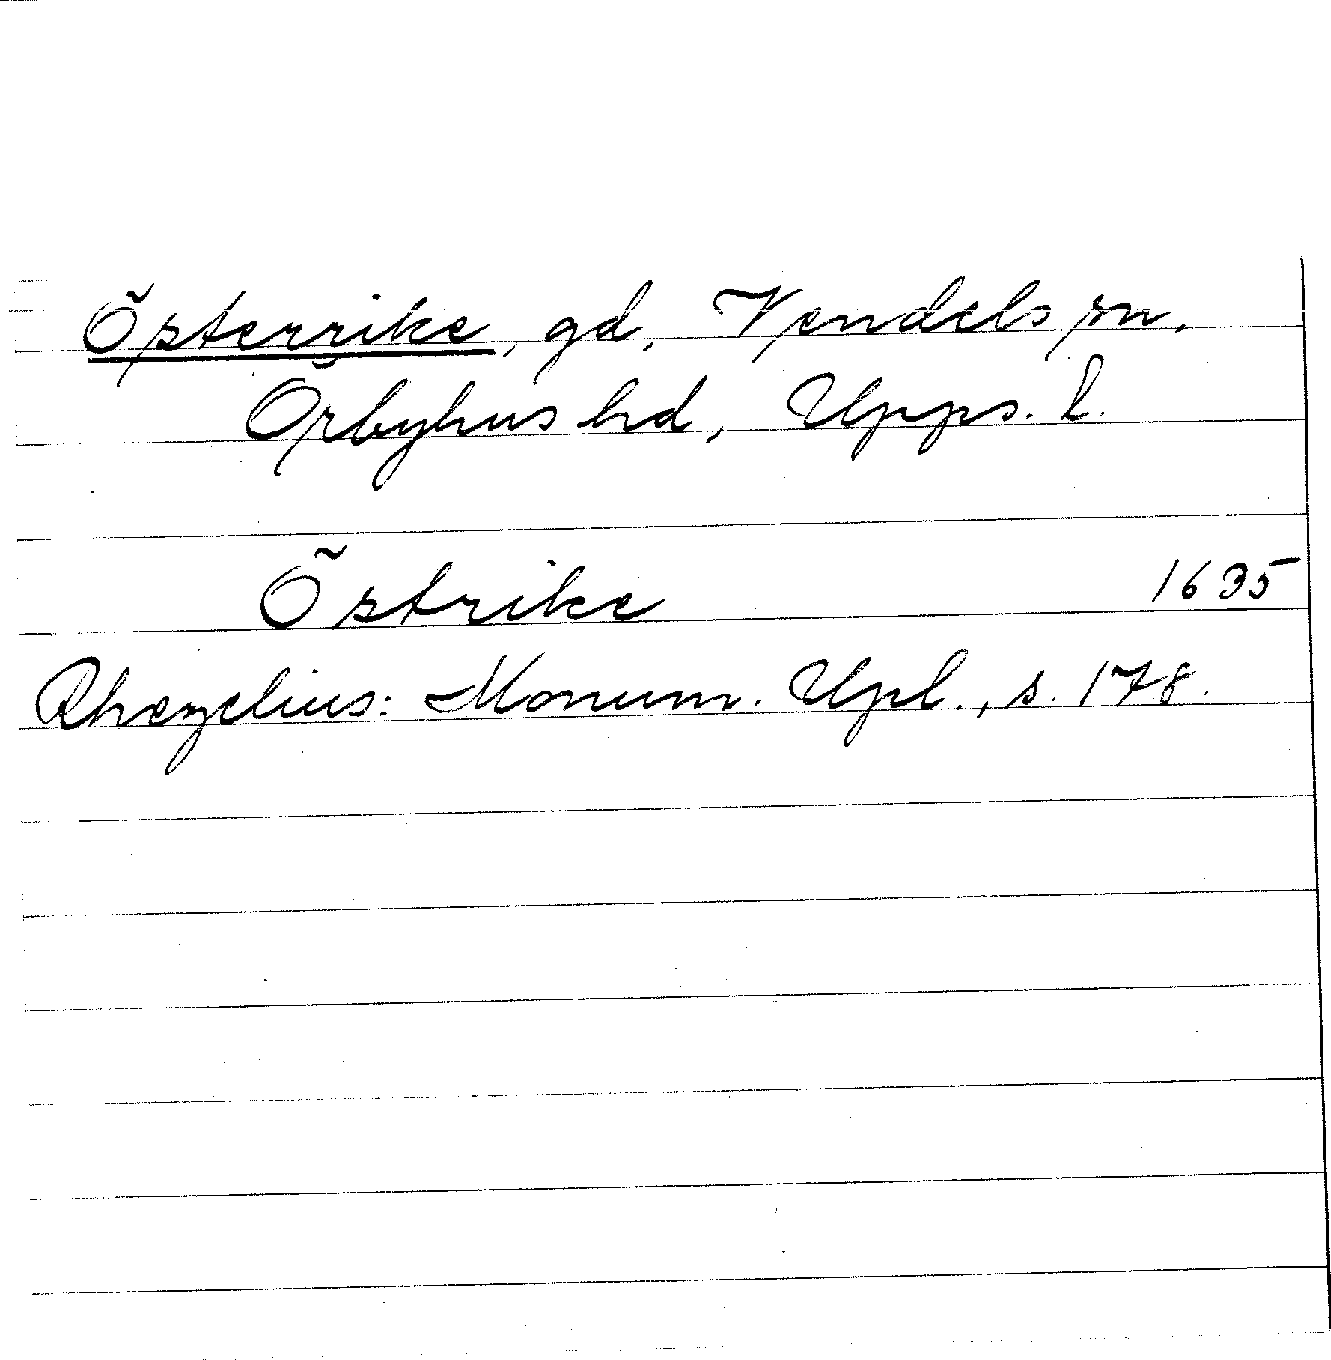 Österrike, gd, Vendels sn,
Örbyhus hd, Upps. l.
Östrike 1635
Rhezelius: Monum. Upl., s. 178.